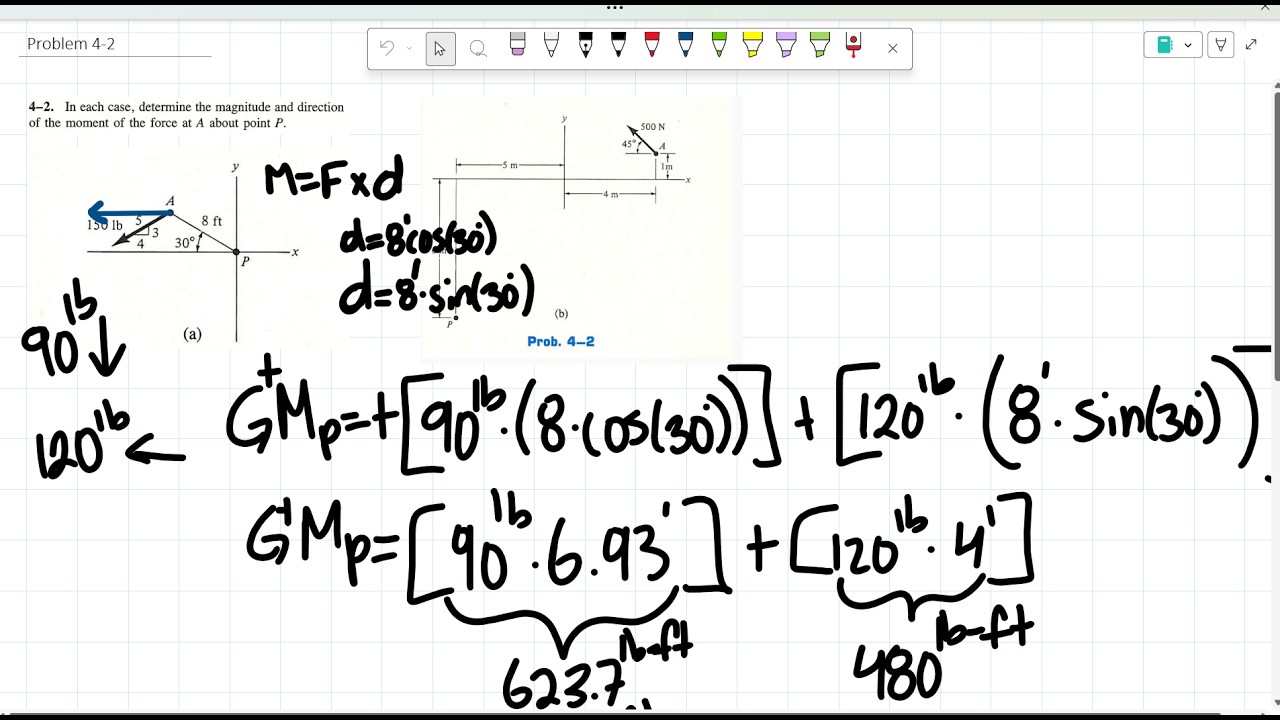 Problem 4-2
4–2. In each case, determine the magnitude and direction
of the moment of the force at A about point P.
y
A
150 lb
5
3
4
8 ft
30°
x
P
(a)
M=F×d
d=8'cos(30°)
d=8'·sin(30°)
y
500 N
45°
A
5 m
1m
x
4 m
P
(b)
Prob. 4–2
90 lb ↓
120 lb ←
+
Mp=+[90 lb·(8·cos(30°))] + [120 lb·(8'·sin(30°))
+
Mp=[90 lb·6.93'] + [120 lb·4']
623.7 lb-ft
480 lb-ft